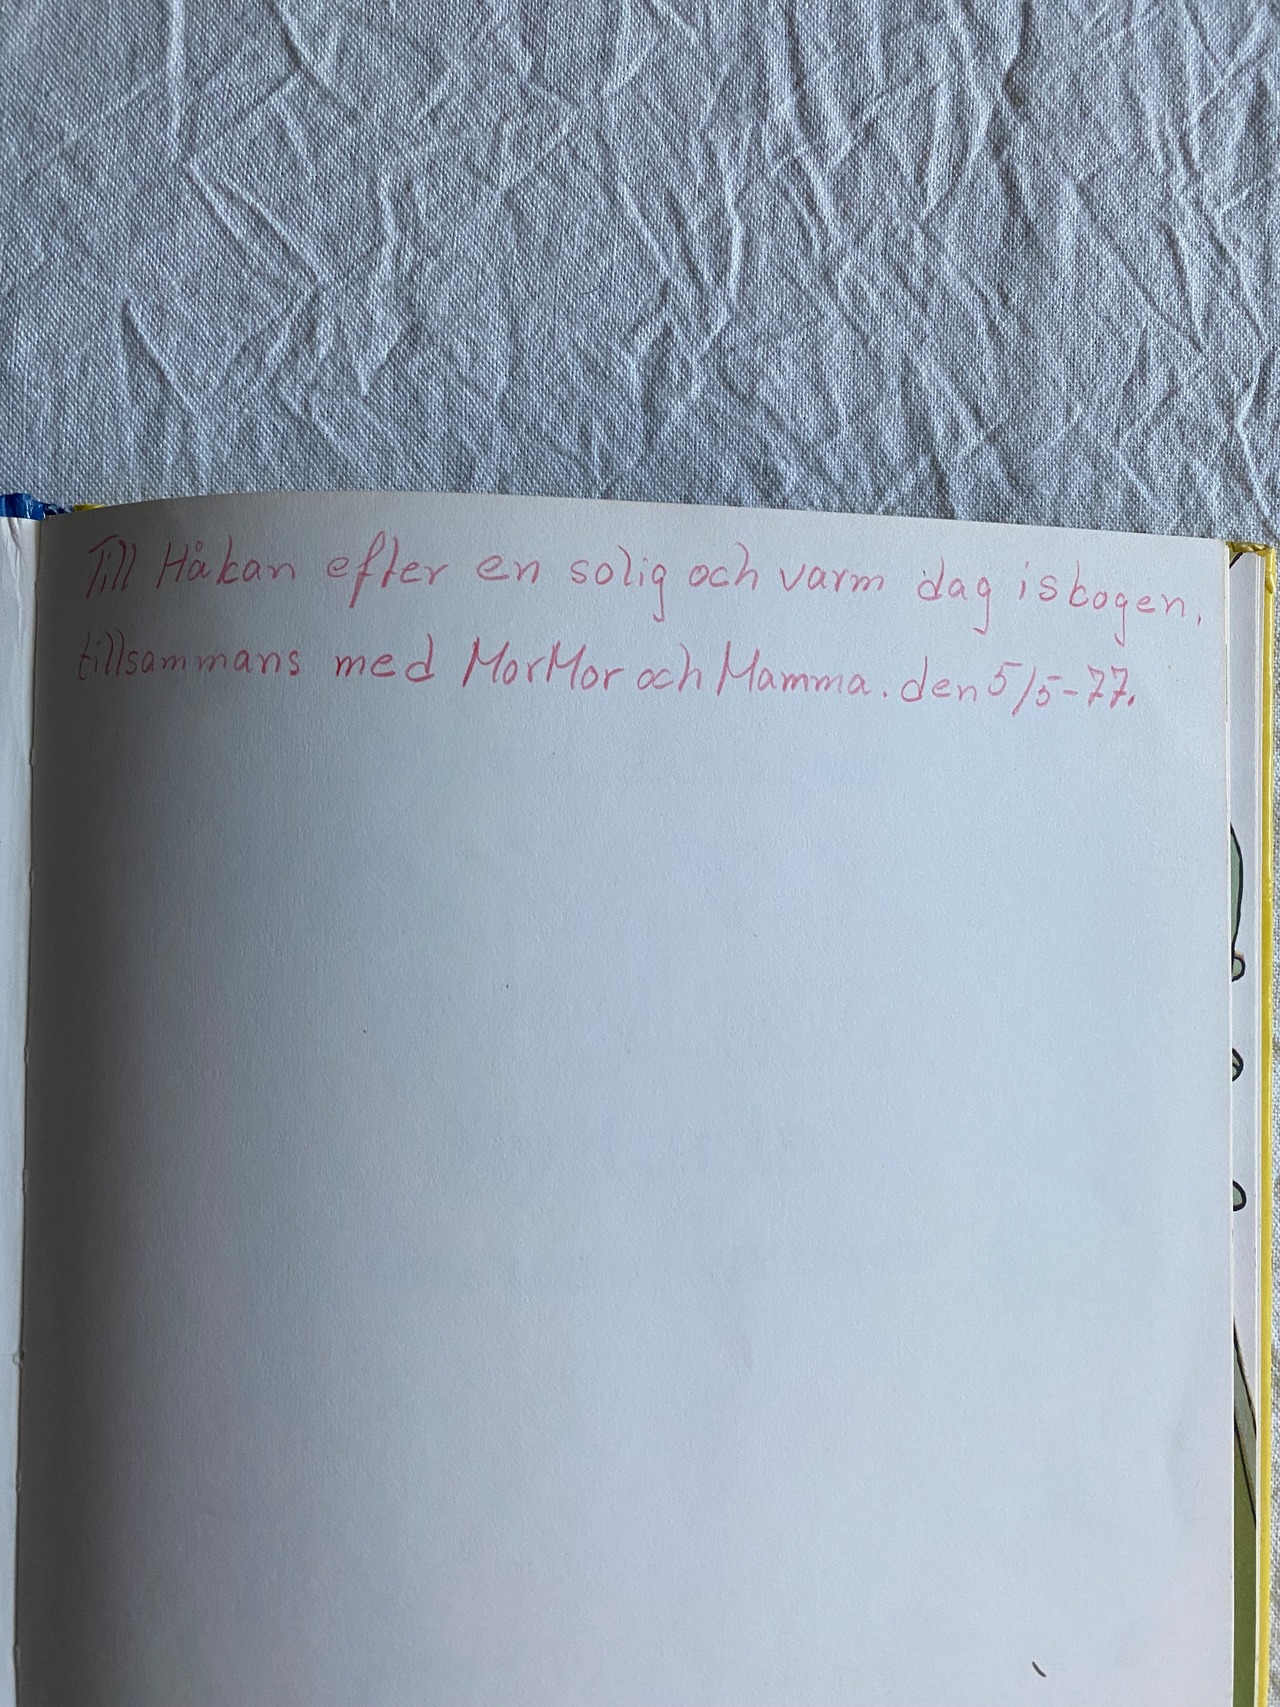 Till Håkan efter en solig och varm dag iskogen,
tillsammans med MorMor och Mamma. den 5/5-77.